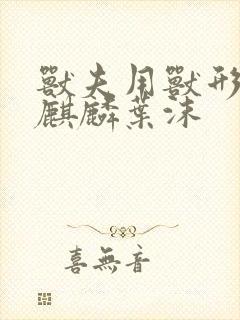 獸夫用獸形
麒麟葉沫
喜無音